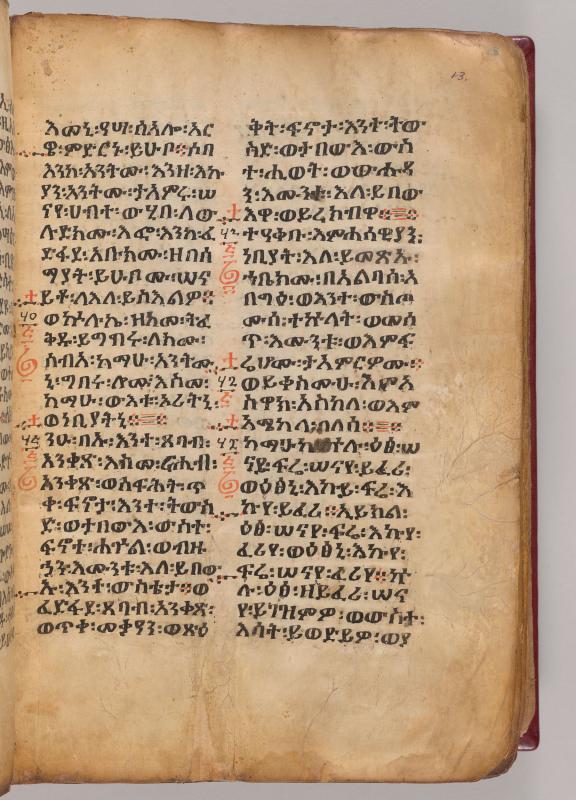 እመኒ፡ዓሣ፡ሰአሎ፡አር
ዌ፡ምድርኑ፡ይሁቦ፡ሶበ
እንከ፡አንትሙ፡እንዘ፡እኩ
ያን፡አንትሙ፡ታአምሩ፡ሠ
ናየ፡ሀብተ፡ውሂበ፡ለው
ሉድክሙ፡እፎ፡እንከ፡ፈ
ድፋደ፡አቡክሙ፡ዘበሰ
ማያት፡ይሁቦሙ፡ሠና
ይቶ፡ለእለ፡ይስእልዎ።
ወኵሉኬ፡ዘከመ፡ትፈ
ቅዱ፡ይግበሩ፡ለክሙ፡
ሰብእ፡ከማሁ፡አንትሙ
ኒ፡ግበሩ፡ሎሙ፡እስመ፡
ከማሁ፡ውእቱ፡ኦሪትኒ፡
ወነቢያትኒ።
አንቀጽ፡እስመ፡ርሒብ፡
አንቀጽ፡ወሰፋሕት፡ጥ
ቀ፡ፍኖታ፡እንተ፡ትወስ
ድ፡ወተበውእ፡ውስተ፡
ፍኖተ፡ሐጕል፡ወብዙ
ኃን፡እሙንቱ፡እለ፡ይበው
ኡ፡እንተ፡ውስቴታ።ወ
ፈድፋደ፡ጸባብ፡አንቀጽ፡
ወጥቀ፡መቃን፡ወጽዕ
ቅት፡ፍኖታ፡እንተ፡ትው
ስድ፡ወታበውእ፡ውስ
ተ፡ሒወት፡ወውሑዳ
ን፡እሙንቱ፡እለ፡ይበው
እዋ፡ወይረክብዋ።
ተዓቀቡ፡እምሐሳዊያን፡
ነቢያት፡እለ፡ይመጽኡ፡
ኀቤክሙ፡በአልባሰ፡አ
ባግዕ፡ወእንተ፡ውስጦ
ሙሰ፡ተኵላት፡ወመሰ
ጥ፡እሙንቱ፡ወእምፍ
ሬሆሙ፡ታአምርዎሙ።
ወይቀስሙሁ፡እምአ
ስዋክ፡አስካለ፡ወእም
አሜከላ፡በለሰ።
ናይ፡ፍሬ፡ሠናየ፡ይፈሪ፡
ወዕፅኒ፡እኩይ፡ፍሬ፡እ
ኩየ፡ይፈሪ።ኢይክል፡
ዕፅ፡ሠናየ፡ፍሬ፡እኩየ፡
ፈሪየ፡ወዕፅኒ፡እኩየ፡
ፍሬ፡ሠናየ፡ፈሪየ።ኵ
ሉ፡ዕፅ፡ዘይፈሪ፡ሠና
የ፡ይገዝምዎ፡ወውስተ፡
እሳት፡ይወድይዎ፡ወያ
13.